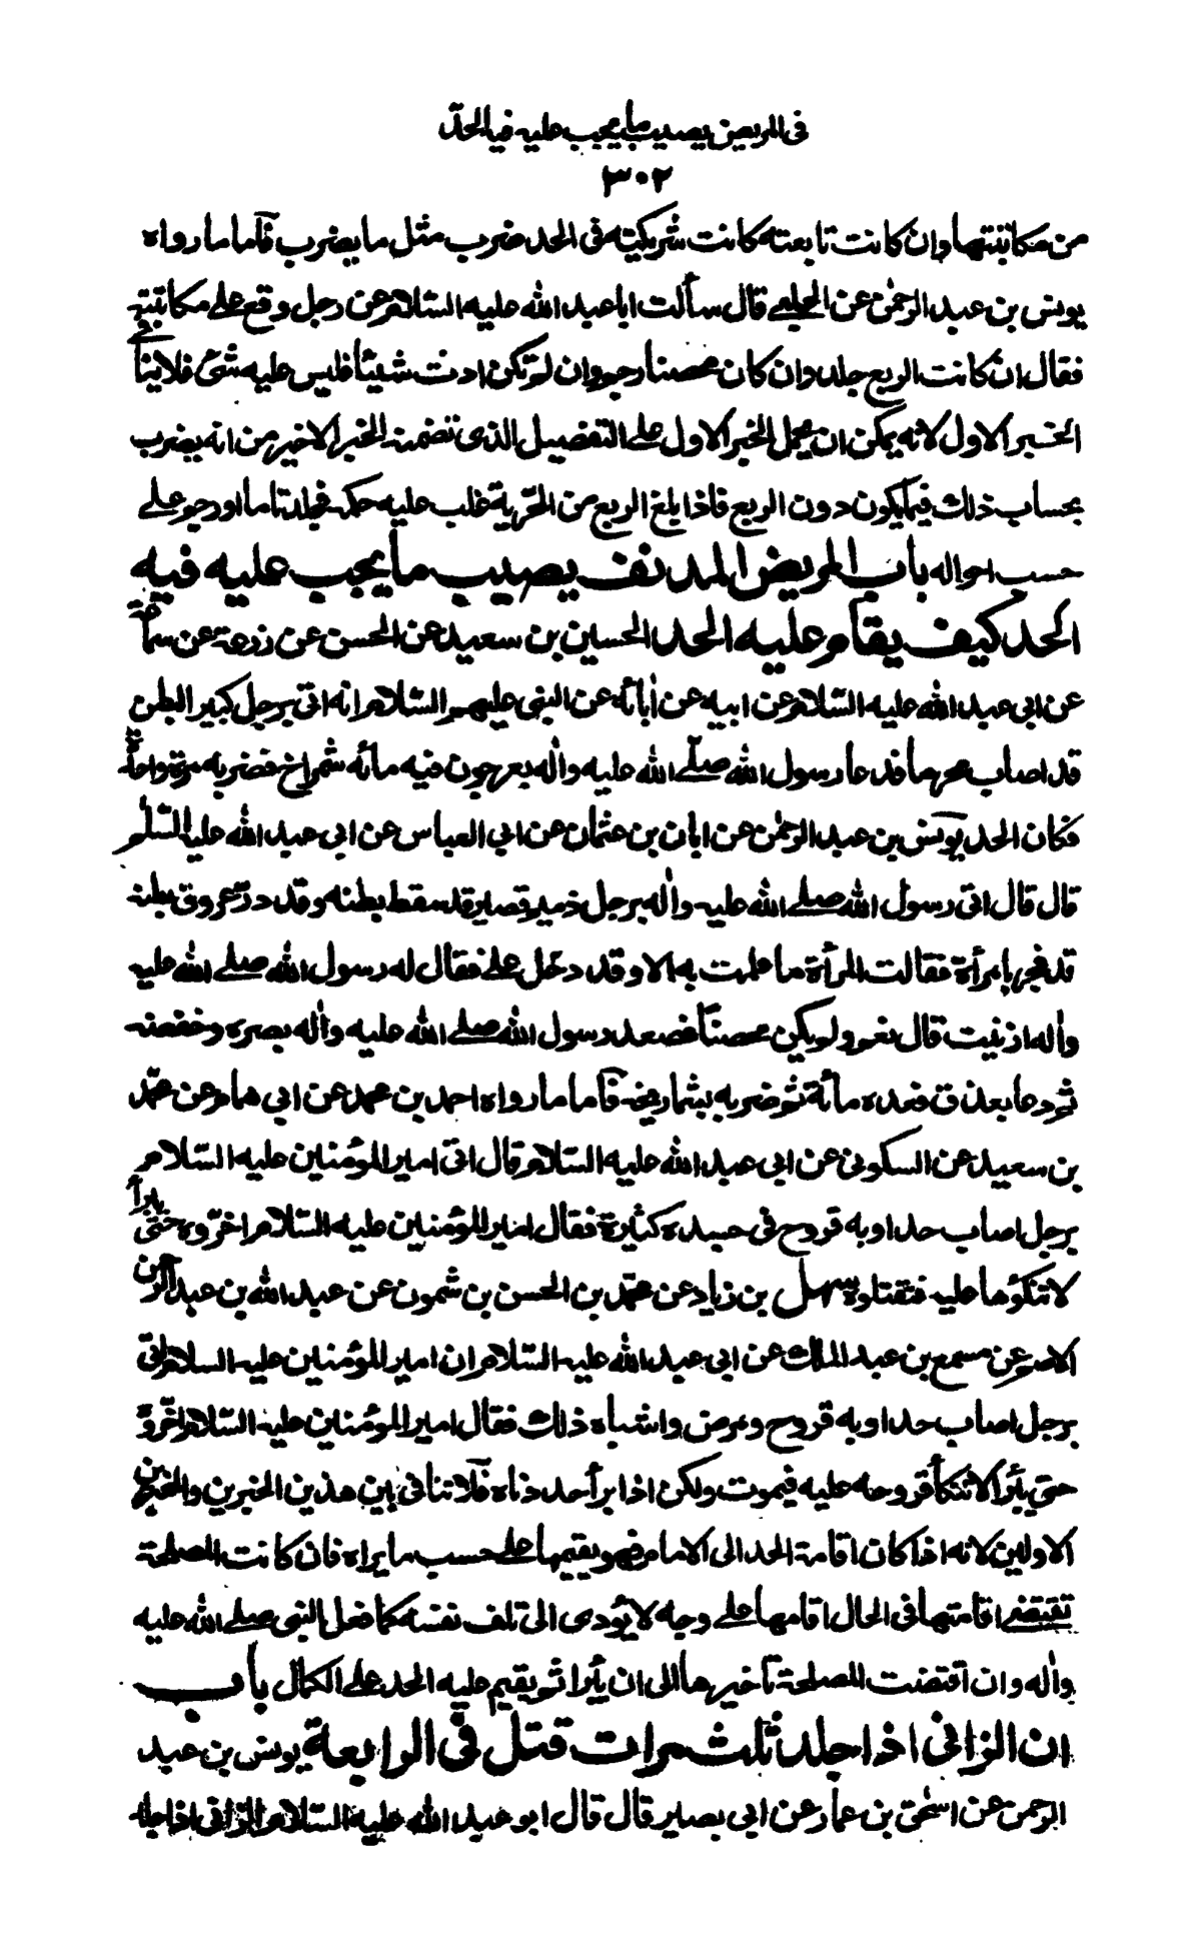 فى المريض يصيب ما يجب عليه فيه الحدّ
٣٠٢
من مكاتبتها وان كانت تابعته كانت شريكته فى الحد ضرب مثل ما يضرب فأما ما رواه
يونس بن عبد الرحمٰن عن الحلبى قال سألت ابا عبد الله عليه السّلام عن رجل وقع على مكاتبته
فقال ان كانت الربع جلد وان كان محصنا رجم وان لم تكن ادت شيئا فليس عليه شئ فلا ينافى
الخبر الاول لانه يمكن ان يحمل الخبر الاول على التفصيل الذى تضمنه الخبر الاخير من انه يضرب
بحساب ذلك فيما يكون دون الربع فاذا بلغ الربع من الحّرية غلب عليه حكمه فجلد تاما او رجم على
حسب احواله باب المريض المدنف يصيب ما يجب عليه فيه
الحد كيف يقام عليه الحد الحسين بن سعيد عن الحسن عن زرعة عن سماعة
عن ابى عبد الله عليه السّلام عن ابيه عن اٰبائه عن النبى عليهم السّلام انه اتى برجل كبير البطن
قد اصاب محرما فدعا رسول الله صلّے الله عليه واٰله بعرجون فيه مائه شمراخ فضربه مرة واحدة
فكان الحد يونس بن عبد الرحمٰن عن ابان بن عثمان عن ابى العباس عن ابى عبد الله عليه السّلٰم
قال قال اتى رسول الله صلے الله عليه واٰله برجل دميم قصير قد سقط بطنه وقد درّ عروق بطنه
قد فجر بامرأة فقالت المرأة ما علمت به الا وقد دخل علىّ فقال له رسول الله صلے الله عليه
واٰله ازنيت قال نعم ولم يكن محصنًا فصعد رسول الله صلے الله عليه واٰله بصره وخفضه
ثم دعا بعذق فعده مائة ثم ضربه بشماريخه فأما ما رواه احمد بن محمد عن ابى همام عن محمّد
بن سعيد عن السكونى عن ابى عبد الله عليه السّلام قال اتى امير المؤمنين عليه السّلام
برجل اصاب حدا وبه قروح فى جسده كثيرة فقال امير المؤمنين عليه السّلام اخّروه حتى يبرأ
لا تنكؤها عليه فتقتلوه سهل بن زياد عن محمّد بن الحسن بن شمون عن عبد الله بن عبد الرحمن
الاصم عن مسمع بن عبد الملك عن ابى عبد الله عليه السّلام ان امير المؤمنين عليه السلام اتى
برجل اصاب حدا وبه قروح ومرض واشباه ذلك فقال امير المؤمنين عليه السّلام اخّروه
حتى يبرأ لا تنكأ قروحه عليه فيموت ولكن اذا برأ حددناه فلا تنافى بين هذين الخبرين والخبرين
الاولين لانه اذا كان اقامة الحد الى الامام فهو يقيمها على حسب ما يراه فان كانت المصلحة
تقتضى اقامتها فى الحال اقامها على وجه لا يؤدى الى تلف نفسه كما فعل النبى صلے الله عليه
واٰله وان اقتضت المصلحة تأخيرها الى ان يبرأ ثم يقيم عليه الحد على الكمال باب
ان الزانى اذا جلد ثلث مرات قتل فى الرابعة يونس بن عبد
الرحمن عن اسحٰق بن عمار عن ابى بصير قال قال ابو عبد الله عليه السّلام الزانى اذا جلد